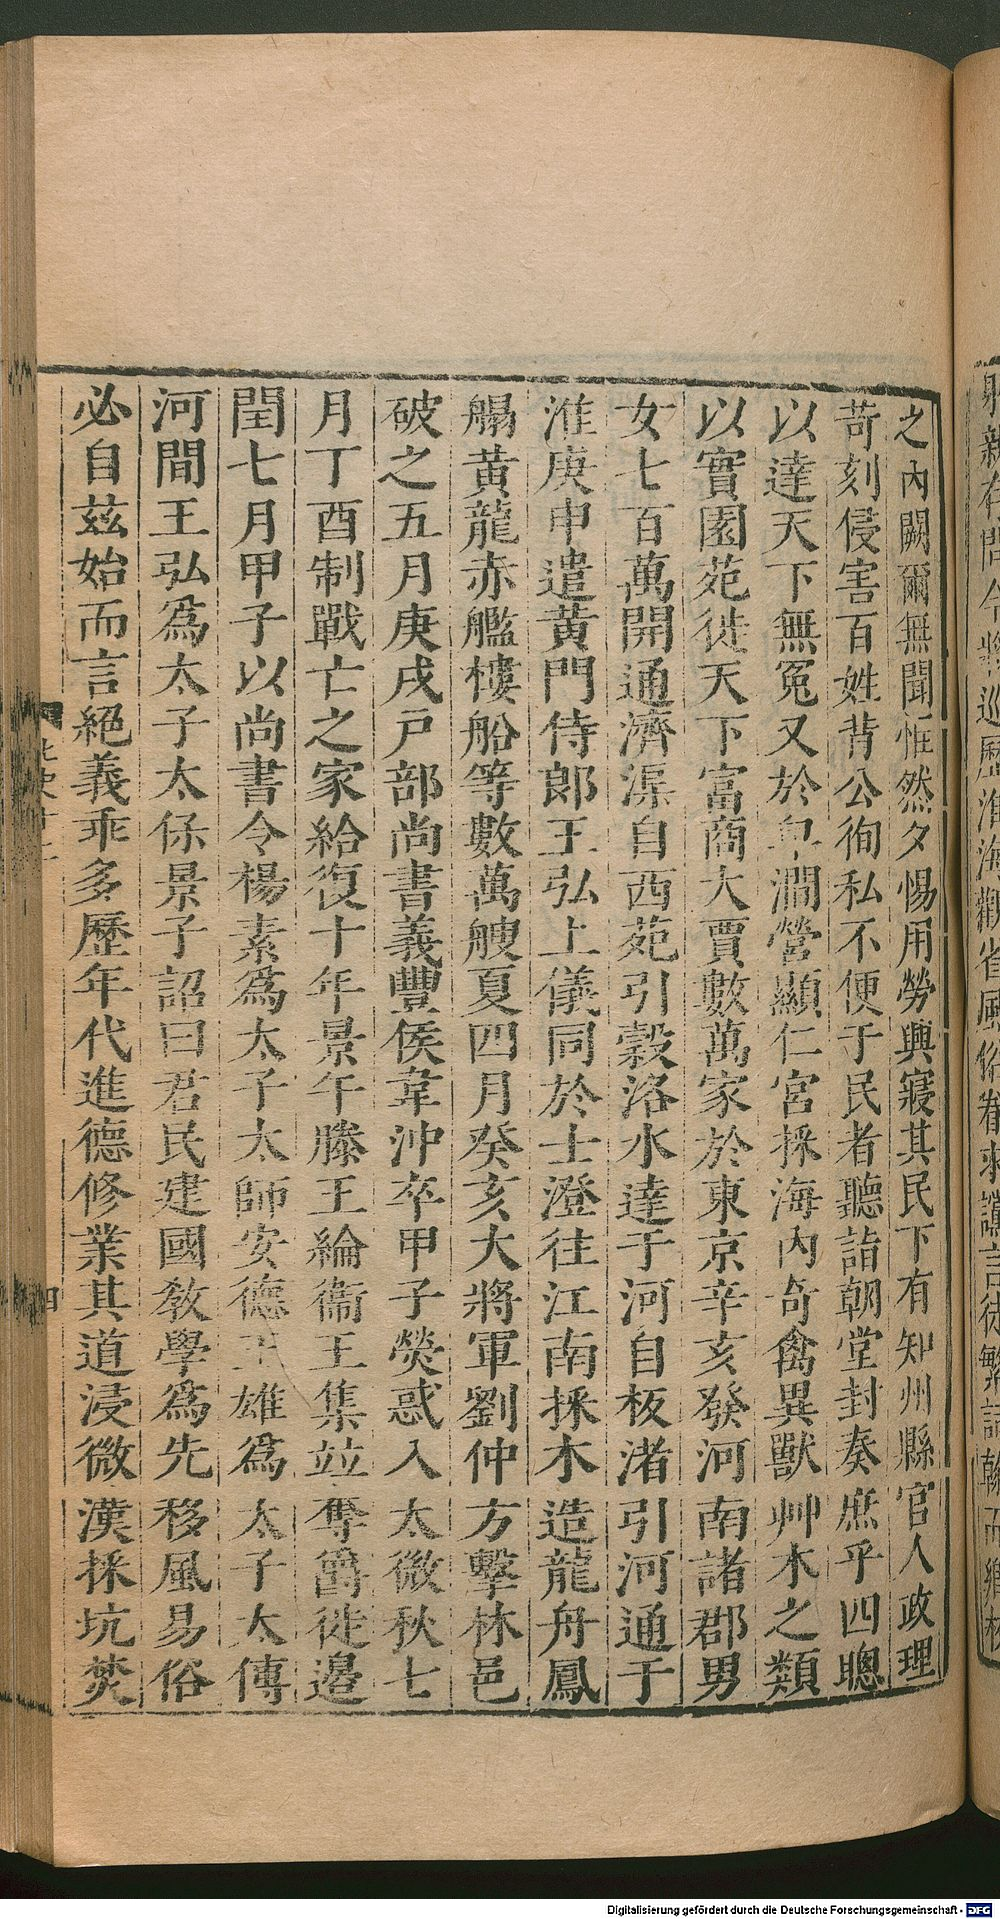 之內闕爾無聞惟然夕惕用勞興寢其民下有知州縣官人政理
苛刻侵害百姓背公徇私不便于民者聽詣朝堂封奏庶乎四聰
以達天下無冤又於皁澗營顯仁宮採海內奇禽異獸艸木之類
以實園苑徙天下富商大賈數萬家於東京辛亥發河南諸郡男
女七百萬開通濟渠自西苑引穀洛水達于河自板渚引河通于
淮庚申遣黃門侍郎王弘上儀同於士澄往江南採木造龍舟鳳
䑽黃龍赤艦樓船等數萬艘夏四月癸亥大將軍劉仲方擊林邑
破之五月庚戌戸部尚書義豐侯韋沖卒甲子熒惑入太微秋七
月丁酉制戰亡之家給復十年景午滕王綸衞王集竝奪爵徙邊
閏七月甲子以尚書令楊素爲太子太師安德王雄爲太子太傅
河間王弘爲太子太保景子詔曰君民建國敎學爲先移風易俗
必自茲始而言絕義乖多歷年代進德修業其道浸微漢採坑焚
四
巡歷淮海觀省風俗眷求讜言徒繁詞翰而鄉校
Digitalisierung gefördert durch die Deutsche Forschungsgemeinschaft - DFG